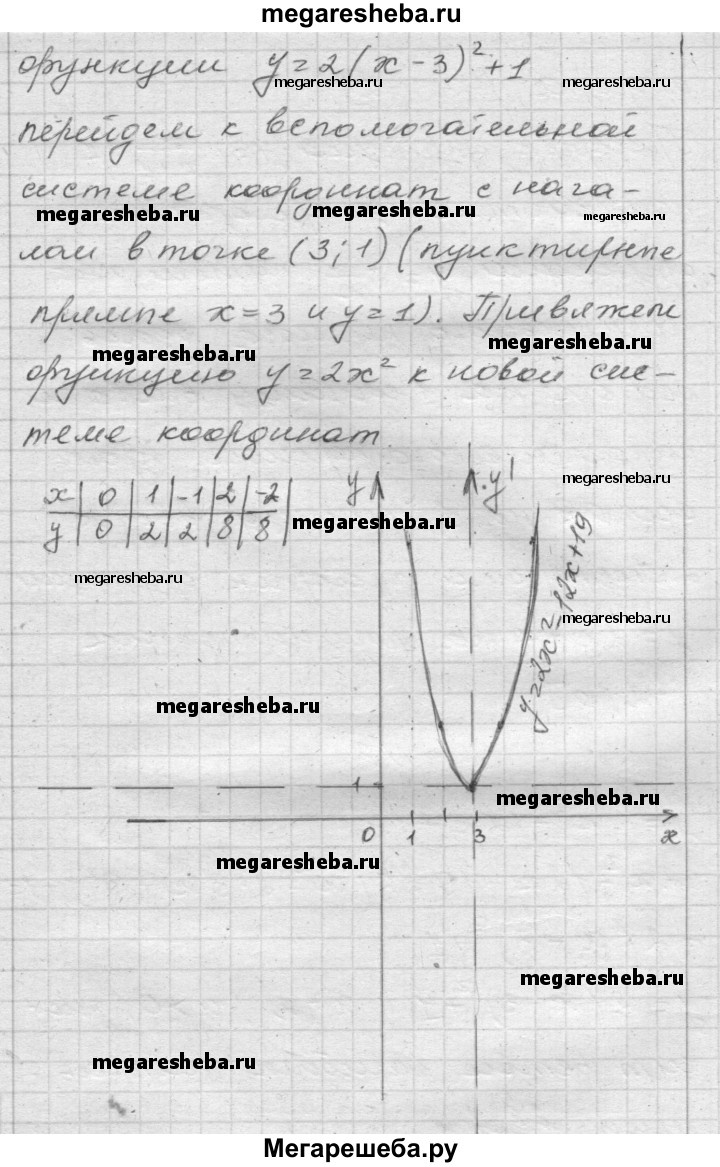 megaresheba.ru
функции y=2(x-3)²+1
megaresheba.ru megaresheba.ru
перейдем к вспомогательной
системе координат с нача-
megaresheba.ru megaresheba.ru megaresheba.ru
лом в точке (3;1) (пунктирные
прямые x=3 и y=1). Привяжем
megaresheba.ru megaresheba.ru
функцию y=2x² к новой сис-
теме координат.
x | 0 | 1 | -1 | 2 | -2 |
y | 0 | 2 | 2 | 8 | 8 |
y y'
megaresheba.ru
megaresheba.ru
megaresheba.ru
megaresheba.ru
y=2x²-12x+19
megaresheba.ru
1
megaresheba.ru
0 1 3 x
megaresheba.ru
megaresheba.ru
megaresheba.ru
Мегарешеба.ру